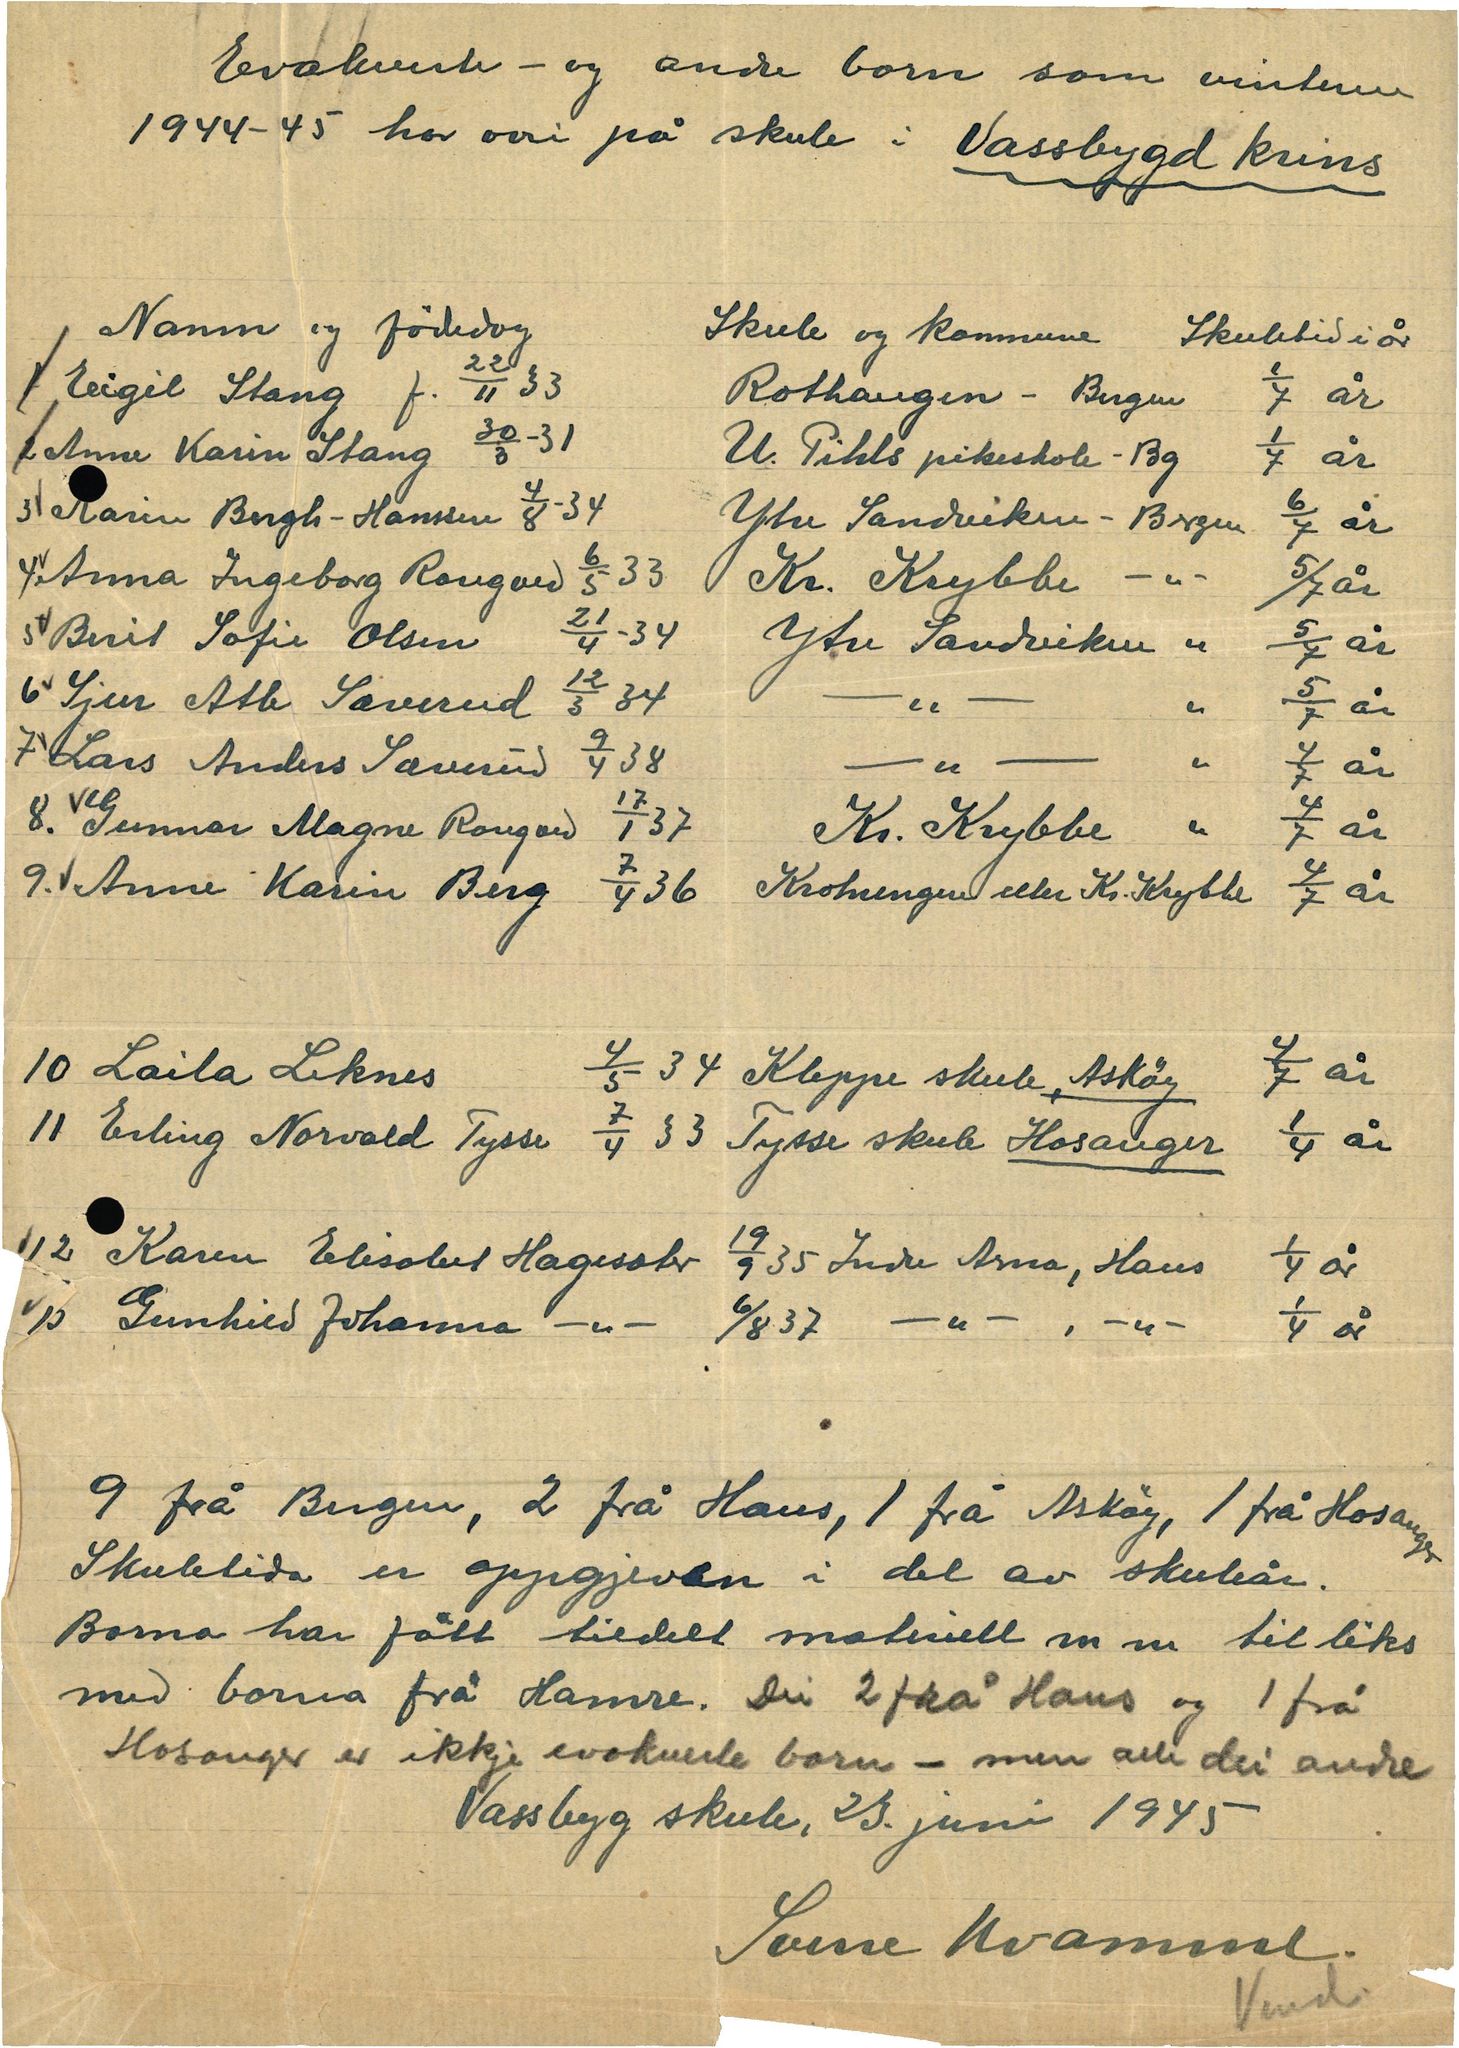 Evakuerte - og andre born som vinteren
1944-45 har vori på skule i Vassbygd krins
Namn og födedag Skule og kommune Skuletid i år
1 Eigil Stang f. 22/11 33 Rothaugen - Bergen 1/7 år
2 Anne Karin Stang 30/3-31 U. Pihls pikeskole - Bg 1/7 år
3 Karin Bergh-Hanssen 4/8-34 Ytre Sandviken - Bergen 6/7 år
4 Anna Ingeborg Rongved 6/5 33 Kr. Krybbe -"- 5/7 år
5 Berit Sofie Olsen 21/4-34 Ytre Sandviken " 5/7 år
6 Sjur Atle Sæverud 12/3 34 -"- " 5/7 år
7 Lars Anders Sæverud 9/4 38 -"- " 4/7 år
8. Gunnar Magne Rongved 17/1 37 Kr. Krybbe " 4/7 år
9. Anne Karin Berg 7/4 36 Krohnengen eller Kr. Krybbe 4/7 år
10 Laila Leknes 4/5 34 Kleppe skule, Asköy 4/7 år
11 Erling Norvald Tysse 7/4 33 Tysse skule Hosanger 1/4 år
12 Karen Elisabet Hagesæter 19/9 35 Indre Arna, Haus 1/4 år
13 Gunhild Johanna -"- 6/8 37 -"- , -"- 1/4 år
9 frå Bergen, 2 frå Haus, 1 frå Asköy, 1 frå Hosanger
Skuletida er oppgjeven i del av skuleår.
Borna har fått tildelt materiell m m til liks
med borna frå Hamre. Dei 2 frå Haus og 1 frå
Hosanger er ikkje evakuerte born - men alle dei andre
Vassbyg skule, 23. juni 1945
Sverre Kvamme.
Vend.